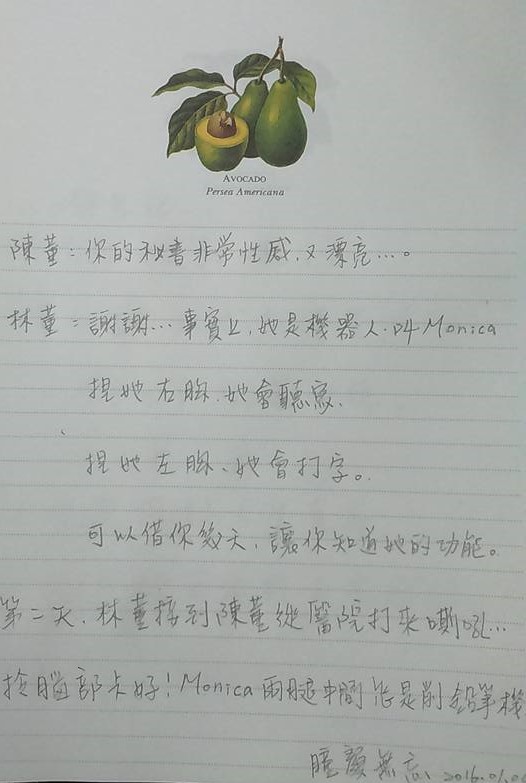 AVOCADO
Persea Americana
陳董:你的秘書非常性感,又漂亮…。
林董:謝謝…事實上,她是機器人.叫Monica
捏她右胸,她會聽寫.
捏她左胸、她會打字。
可以借你幾天,讓你知道她的功能。
第二天,林董接到陳董從醫院打來嘶吼…
部卡好!Monica兩腿中間 是削鉛筆機
無忘